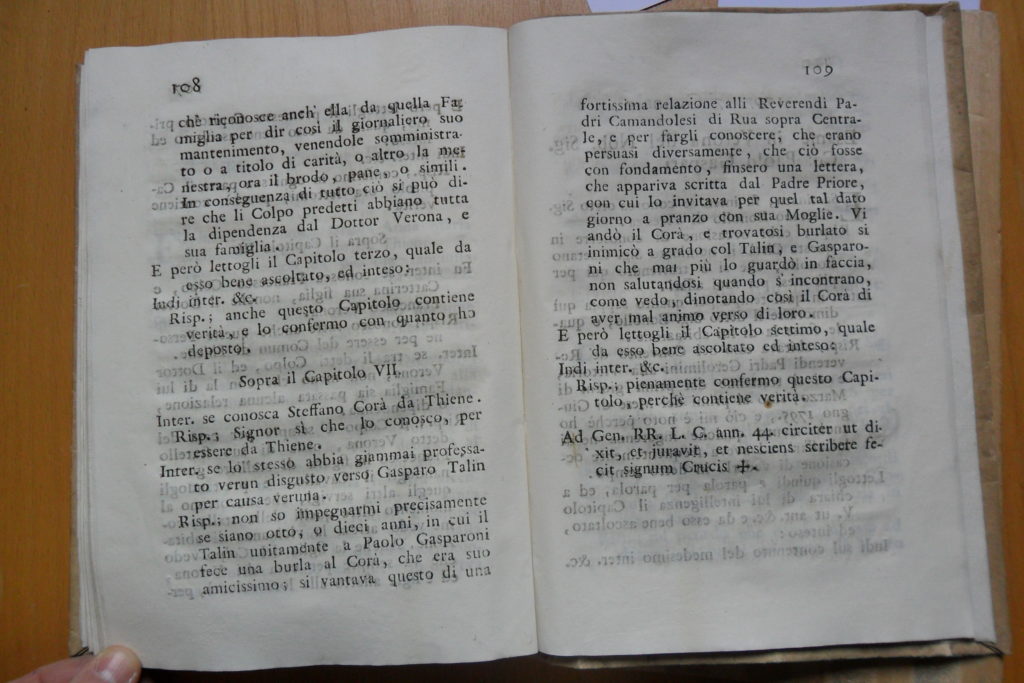 108
chè riconosce anch' ella da quella Fa-
miglia per dir così il giornaliero suo
mantenimento, venendole somministra-
to o a titolo di carità, o altro la me-
nestra, ora il brodo, pane, o simili.
In conseguenza di tutto ciò si può di-
re che li Colpo predetti abbiano tutta
la dipendenza dal Dottor Verona, e
sua famiglia.
E però lettogli il Capitolo terzo, quale da
esso bene ascoltato, ed inteso;
Indi inter. &c.
Risp.; anche questo Capitolo contiene
verità, e lo confermo con quanto ho
deposto.
Sopra il Capitolo VII.
Inter. se conosca Steffano Corà da Thiene.
Risp.; Signor sì che lo conosco, per
essere da Thiene.
Inter. se lo stesso abbia giammai professa-
to verun disgusto verso Gasparo Talin
per causa veruna.
Risp.; non so impegnarmi precisamente
se siano otto, o dieci anni, in cui il
Talin unitamente a Paolo Gasparoni
fece una burla al Corà, che era suo
amicissimo; si vantava questo di una
109
fortissima relazione alli Reverendi Pa-
dri Camandolesi di Rua sopra Centra-
le, e per fargli conoscere, che erano
persuasi diversamente, che ciò fosse
con fondamento, finsero una lettera,
che appariva scritta dal Padre Priore,
con cui lo invitava per quel tal dato
giorno a pranzo con sua Moglie. Vi
andò il Corà, e trovatosi burlato si
inimicò a grado col Talin, e Gasparo-
ni che mai più lo guardò in faccia,
non salutandosi quando s' incontrano,
come vedo, dinotando così il Corà di
aver mal animo verso di loro.
E però lettogli il Capitolo settimo, quale
da esso bene ascoltato ed inteso;
Indi inter. &c.
Risp.; pienamente confermo questo Capi-
tolo, perchè contiene verità.
Ad Gen. RR. L. C. ann. 44. circiter ut di-
xit, et juravit, et nesciens scribere fe-
cit signum Crucis ✠.